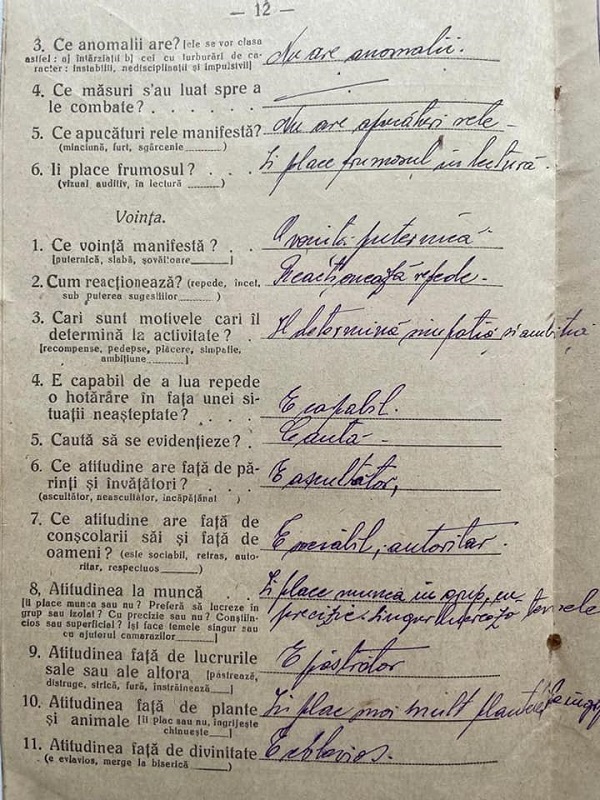 — 12 —
3. Ce anomalii are? [ele se vor clasa Nu are anomalii.
astfel: a) întârziații b) cei cu turburări de ca-
racter: instabili, nedisciplinații și impulsivii]
4. Ce măsuri s'au luat spre a
le combate? . . . . . .
5. Ce apucături rele manifestă? Nu are apucături rele
(minciună, furt, sgârcenie ........)
6. Ii place frumosul? . . . Îi place frumosul în lectură.
(vizual auditiv, în lectură ........)
Voința.
1. Ce voință manifestă? . . O voință puternică
[puternică, slabă, șovăitoare......]
2. Cum reacționează? (repede, încet, Reacționează repede.
sub puterea sugestiilor ........)
3. Cari sunt motivele cari îl Îl determină simpatia și ambiția
determină la activitate? . .
[recompense, pedepse, plăcere, simpatie,
ambițiune ........]
4. E capabil de a lua repede
o hotărâre în fața unei si- E capabil.
tuații neașteptate? . . . .
5. Caută să se evidențieze? . Caută
6. Ce atitudine are față de pă- E ascultător,
rinți și învățători? . . . .
(ascultător, neascultător, încăpățânat )
7. Ce atitudine are față de
conșcolarii săi și față de E sociabil, autoritar.
oameni? (este sociabil, retras, auto-
ritar, respectuos ........)
8, Atitudinea la muncă . . Îi place munca în grup, cu
[îi place munca sau nu? Preferă să lucreze în precizie. Singur lucrează temele
grup sau izolat? Cu precizie sau nu? Conștiin-
cios sau superficial? Iși face temele singur sau
cu ajutorul camarazilor........]
9. Atitudinea față de lucrurile E păstrător
sale sau ale altora [păstrează,
distruge, strică, fură, înstrăinează....]
10. Atitudinea față de plante Îi plac mai mult plantele
și animale [îi plac sau nu, îngrijește
chinuește....]
11. Atitudinea față de divinitate E evlavios.
(e evlavios, merge la biserică ......)